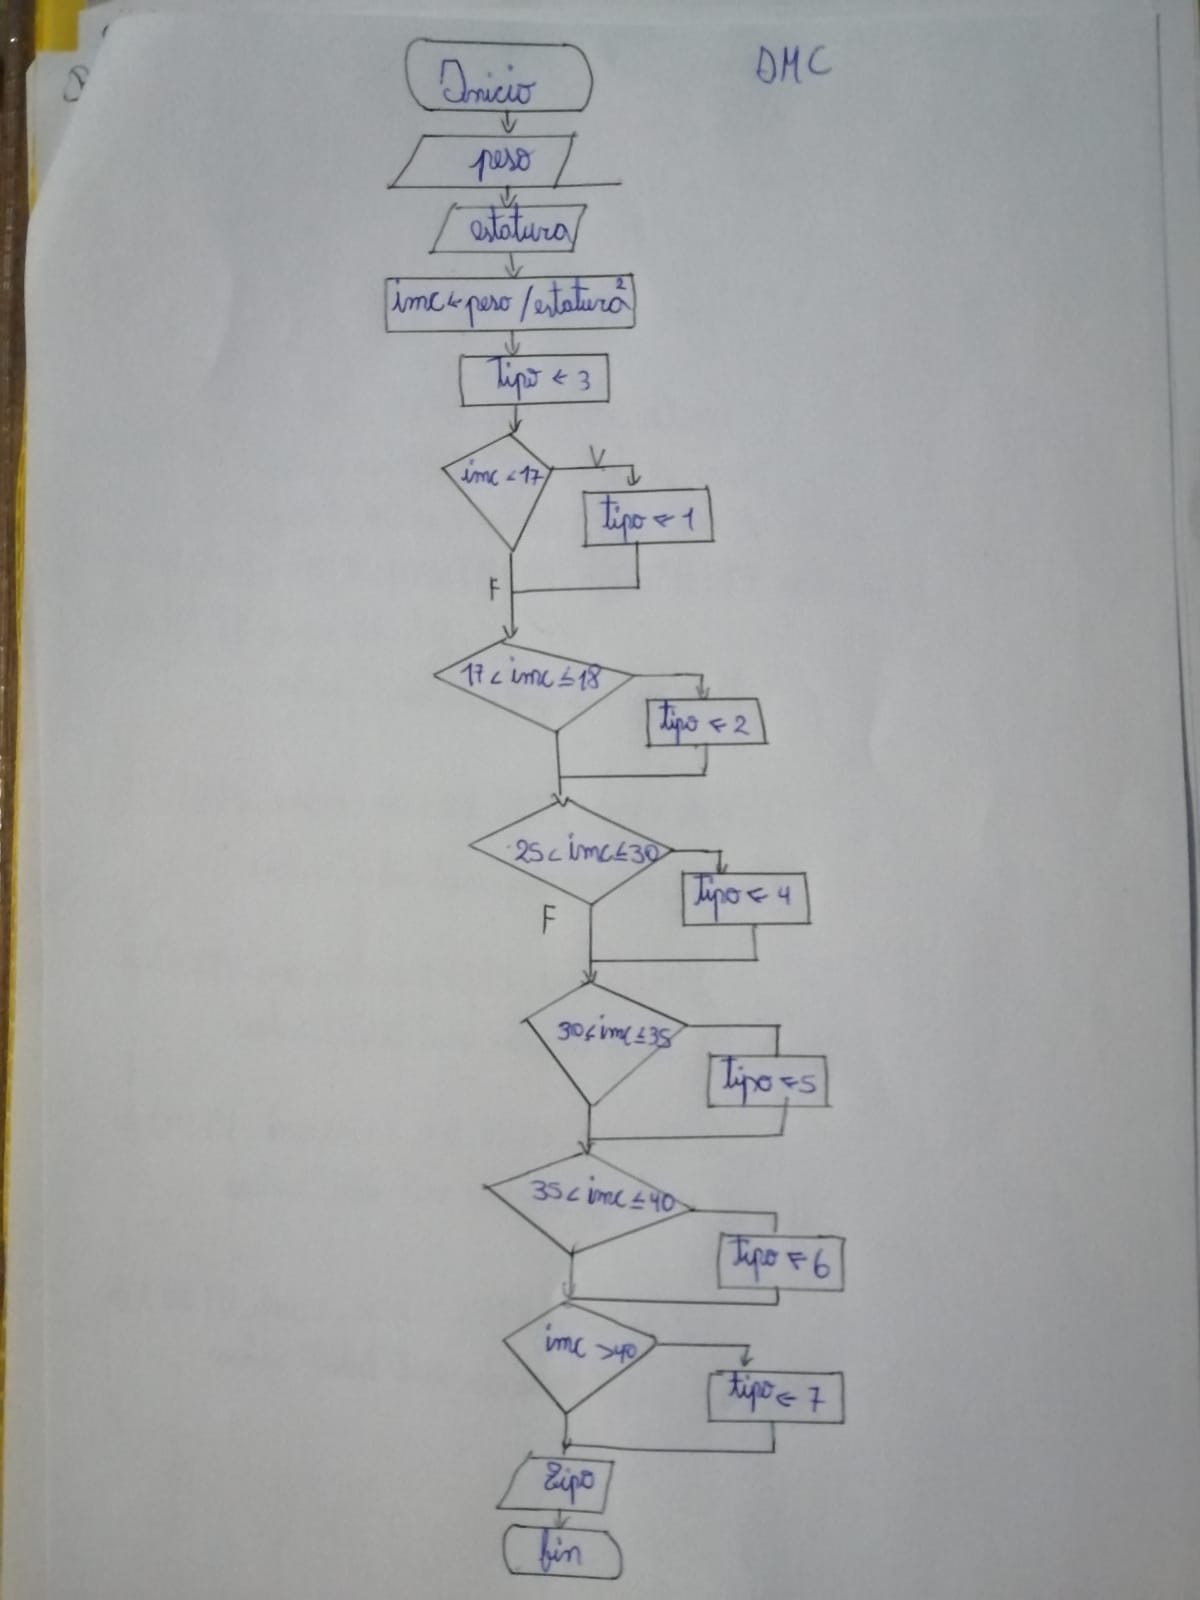 DMC
Inicio
peso
estatura
imc ← peso / estatura²
tipo ← 3
imc < 17
V
tipo ← 1
F
17 < imc ≤ 18
tipo ← 2
25 < imc ≤ 30
tipo ← 4
F
30 < imc ≤ 35
tipo ← 5
35 < imc ≤ 40
tipo ← 6
imc > 40
tipo ← 7
tipo
fin